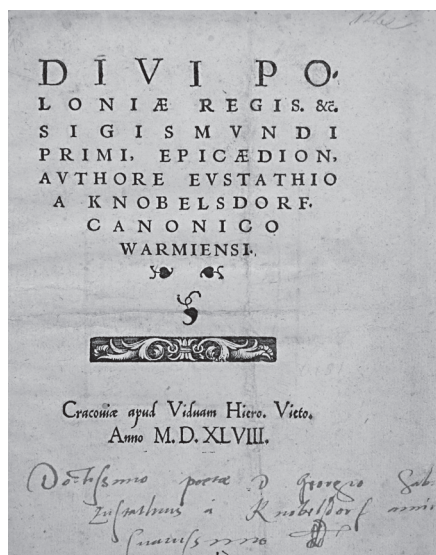 DIVI PO-
LONIÆ REGIS. &c̄.
SIGISMVNDI
PRIMI, EPICÆDION,
AVTHORE EVSTATHIO
A KNOBELSDORF.
CANONICO
WARMIENSI.
Cracoviæ apud Viduam Hiero. Vieto.
Anno M. D. XLVIII.
Doctissimo poetae D Georgio Sab
Eustathius à Knobelsdorf amic
suavissimo